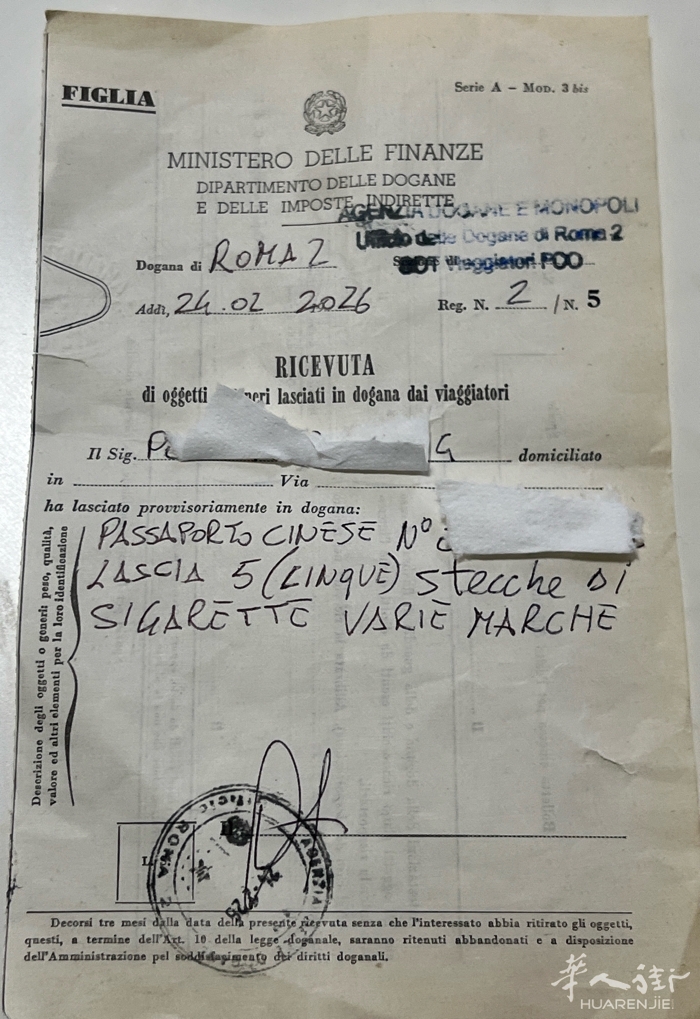 FIGLIA
Serie A – Mod. 3 bis
MINISTERO DELLE FINANZE
DIPARTIMENTO DELLE DOGANE
E DELLE IMPOSTE INDIRETTE
AGENZIA DOGANE E MONOPOLI
Ufficio delle Dogane di Roma 2
SOT Viaggiatori FCO
Dogana di ROMA 2
Addì, 24.02 2026
Reg. N. 2 / N. 5
RICEVUTA
di oggetti neri lasciati in dogana dai viaggiatori
Il Sig. G domiciliato
in Via
ha lasciato provvisoriamente in dogana:
Descrizione degli oggetti o generi: peso, qualità,
valore ed altri elementi per la loro identificazione
PASSAPORTO CINESE N°
LASCIA 5 (CINQUE) stecche DI
SIGARETTE VARIE MARCHE
AGENZIA
ROMA 2
Decorsi tre mesi dalla data della presente ricevuta senza che l'interessato abbia ritirato gli oggetti,
questi, a termine dell'Art. 10 della legge doganale, saranno ritenuti abbandonati e a disposizione
dell'Amministrazione pel soddisfacimento dei diritti doganali.
华人街
HUARENJIE